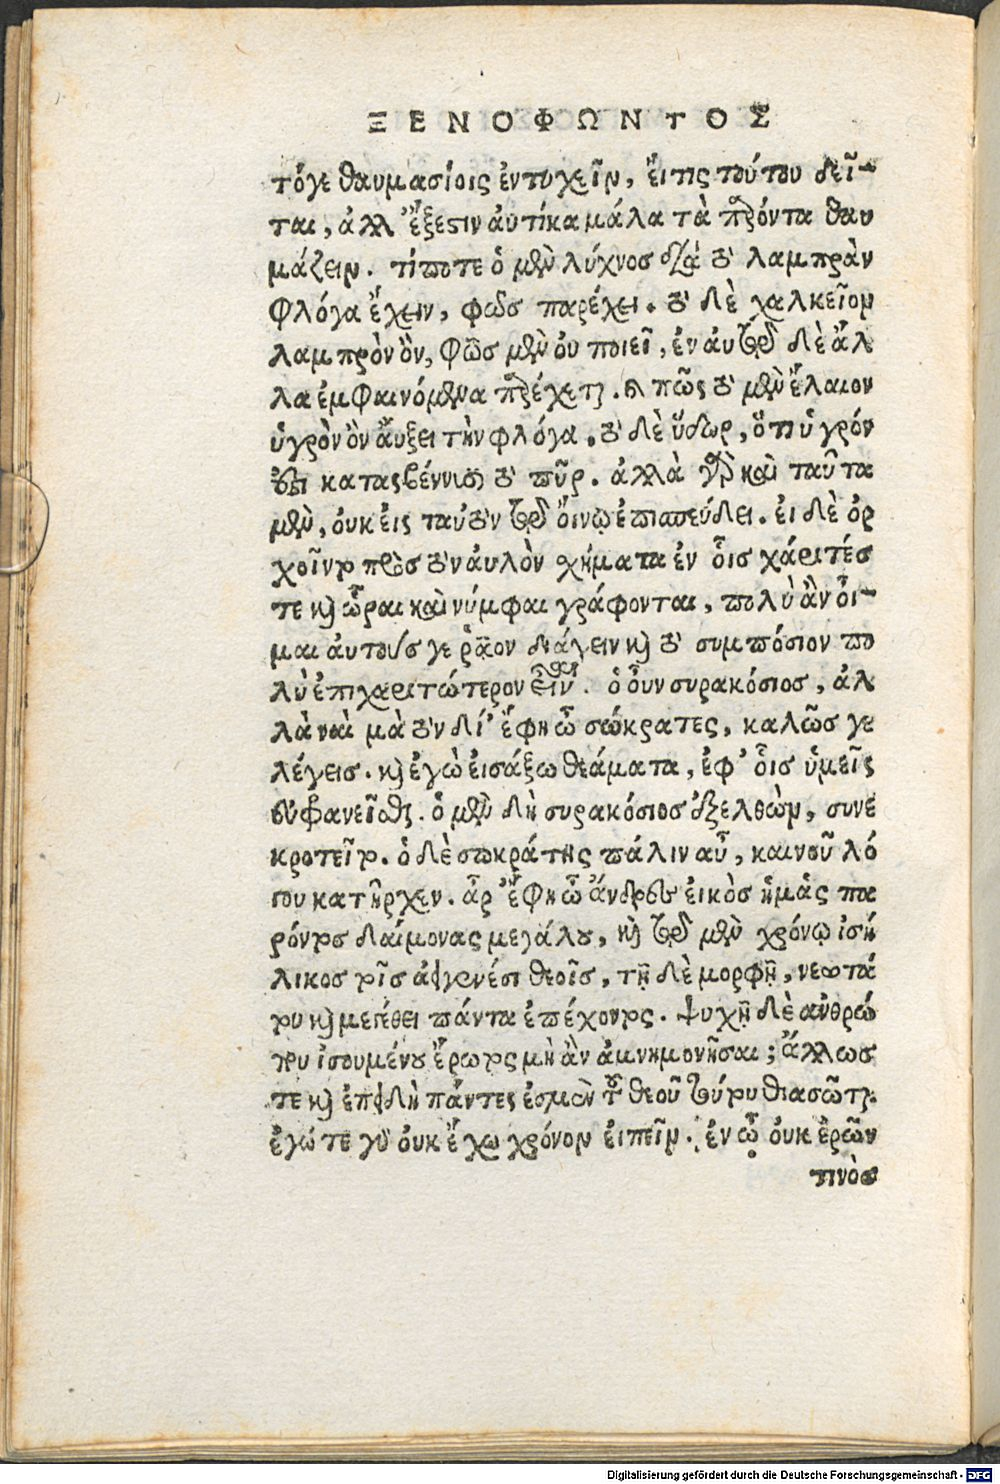 ΞΕΝΟΦΩΝΤΟΣ
τόγε θαυμασίοις ἐντυχεῖν, ἔιτις τούτου δεῖ-
ται, ἀλλ' ἔξεστιν ἀυτίκα μάλα τὰ παρόντα θαυ
μάζειν. τίποτε ὁ μὲν λύχνος διὰ τὸ λαμπρὰν
φλόγα ἔχειν, φῶς παρέχει. τὸ δὲ χαλκεῖον
λαμπρὸν ὂν, φῶς μὲν ὀυ ποιεῖ, ἐν ἁυτῷ δὲ ἄλ
λα ἐμφαινόμενα παρέχεται. καὶ πῶς τὸ μὲν ἔλαιον
ὑγρὸν ὂν ἄυξει τὴν φλόγα. τὸ δὲ ὕδωρ, ὅτι ὑγρόν
ἐστι κατασβέννυσι τὸ πῦρ. ἀλλὰ γὰρ καὶ ταῦτα
μὲν, ὀυκ ἐις ταὐτὸν τῷ ὄινῳ ἐπισπεύδει. ἐι δὲ ὀρ
χοῖντο πρὸς τὸν ἀυλὸν χήματα ἐν οἷς χάριτές
τε καὶ ὧραι καὶ νύμφαι γράφονται, πολὺ ἂν οἶ-
μαι ἀυτούς γε ῥᾷον διάγειν καὶ τὸ συμπόσιον πο
λὺ ἐπιχαριτώτερον εἶναι. ὁ οὖν συρακόσιος, ἀλ
λὰ ναὶ μὰ τὸν δί' ἔφη ὦ σώκρατες, καλῶς γε
λέγεις. καὶ ἐγὼ ἐισάξω θεάματα, ἐφ' οἷς ὑμεῖς
ἐυφρανεῖσθε. ὁ μὲν δὴ συρακόσιος ἐξελθὼν, συνε
κροτεῖτο. ὁ δὲ σωκράτης πάλιν αὖ, καινοῦ λό
γου κατῆρχεν. ἆρ' ἔφη ὦ ἄνδρες εἰκὸς ἡμᾶς πα
ρόντος δαίμονος μεγάλου, καὶ τῷ μὲν χρόνῳ ἰσή
λικος τοῖς ἀειγενέσι θεοῖς, τῇ δὲ μορφῇ, νεωτά
του καὶ μεγέθει πάντα ἐπέχοντος. ψυχῇ δὲ ἀνθρώ
που ἰσουμένου ἔρωτος μὴ ἂν ἀμνημονῆσαι; ἄλλως
τε καὶ ἐπειδὴ πάντες ἐσμὲν τοῦ θεοῦ τούτου θιασῶται.
ἐγώ τε γὰρ ὀυκ ἔχω χρόνον ἐιπεῖν. ἐν ᾧ ὀυκ ἐρῶν
τινὸς
Digitalisierung gefördert durch die Deutsche Forschungsgemeinschaft - DFG